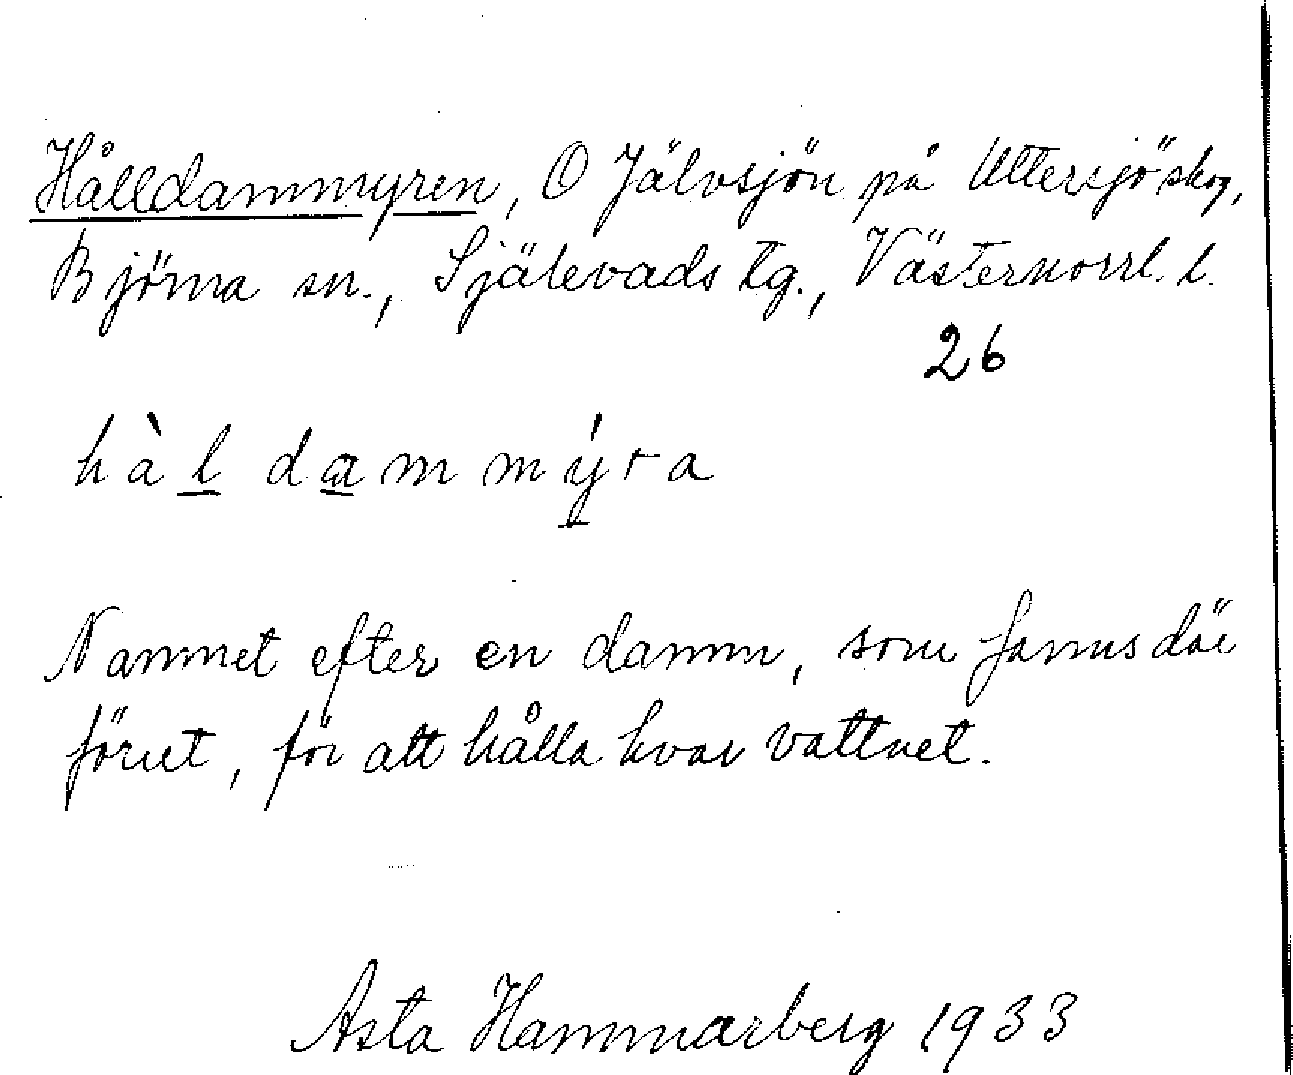 Hålldammyren, O Jälvsjön på Uttersjöskog,
Björna sn., Själevads tg., Västernorrl. l.
26
hàl dammýra
Namnet efter en damm, som fanns där
förut, för att hålla kvar vattnet.
Asta Hammarberg 1933